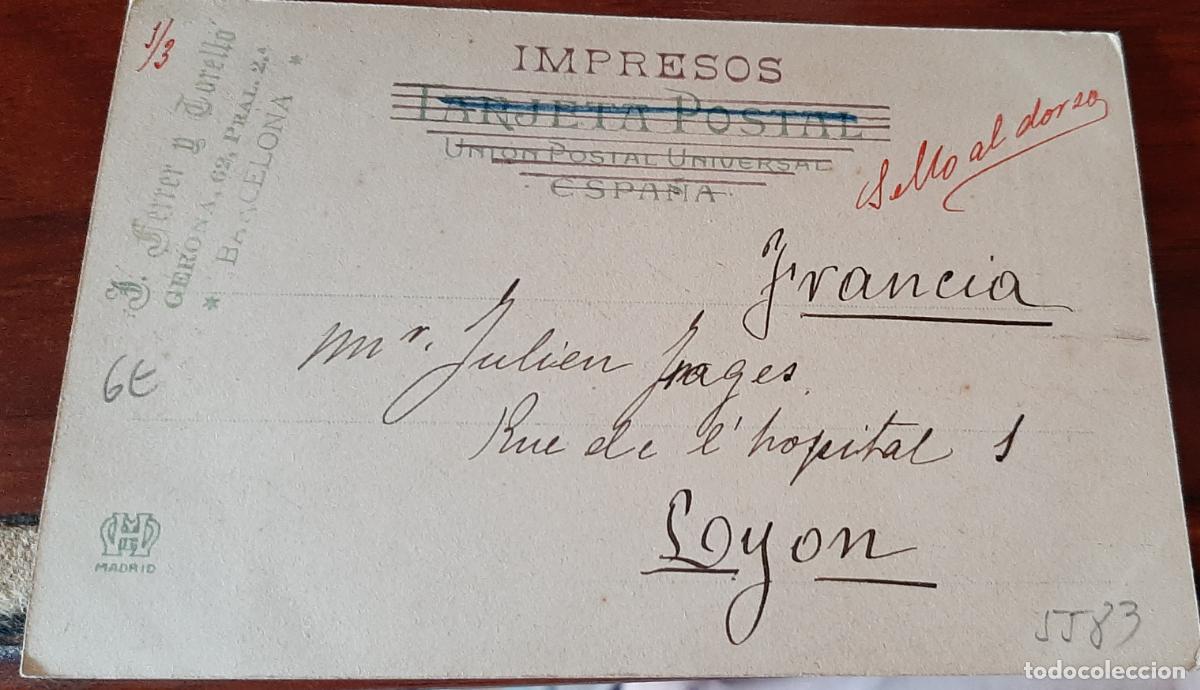 1/3
J. Ferrer y Torelló
GERONA, 62, PRAL. 2.ª
* BARCELONA *
IMPRESOS
TARJETA POSTAL
UNION POSTAL UNIVERSAL
ESPAÑA
Sello al dorso
Francia
Mr. Julien Pages
Rue de l'hopital 1
Lyon
6€
MADRID
5583
todocoleccion